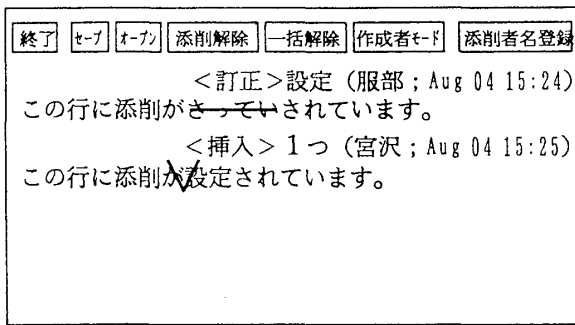 終了 セーブ オープン 添削解除 一括解除 作成者モード 添削者名登録
<訂正>設定(服部;Aug 04 15:24)
この行に添削がさっていされています。
<挿入>1つ(宮沢;Aug 04 15:25)
この行に添削が設定されています。